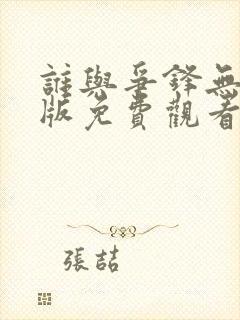 誰與爭鋒無
版免費觀看
張喆